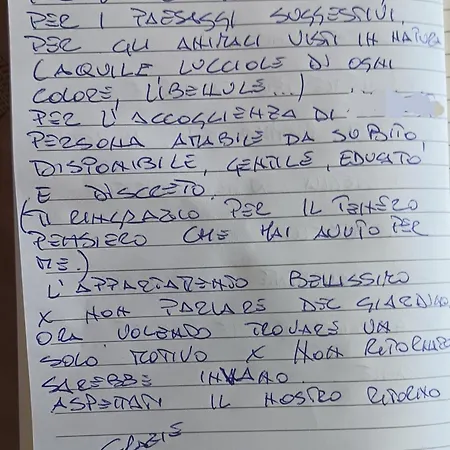 PER I PAESAGGI SUGGESTIVI,
PER GLI ANIMALI VISTI IN NATURA
(AQUILE, LUCCIOLE DI OGNI
COLORE, LIBELLULE...)
PER L'ACCOGLIENZA DI
PERSONA AMABILE DA SUBITO,
DISPONIBILE, GENTILE, EDUCATO
E DISCRETO.
(TI RINGRAZIO PER IL TENERO
PENSIERO CHE HAI AVUTO PER
ME.)
L'APPARTAMENTO BELLISSIMO
X NON PARLARE DEL GIARDINO,
ORA VOLENDO TROVARE UN
SOLO MOTIVO X NON RITORNARE
SAREBBE INVANO.
ASPETTATI IL NOSTRO RITORNO
GRAZIE